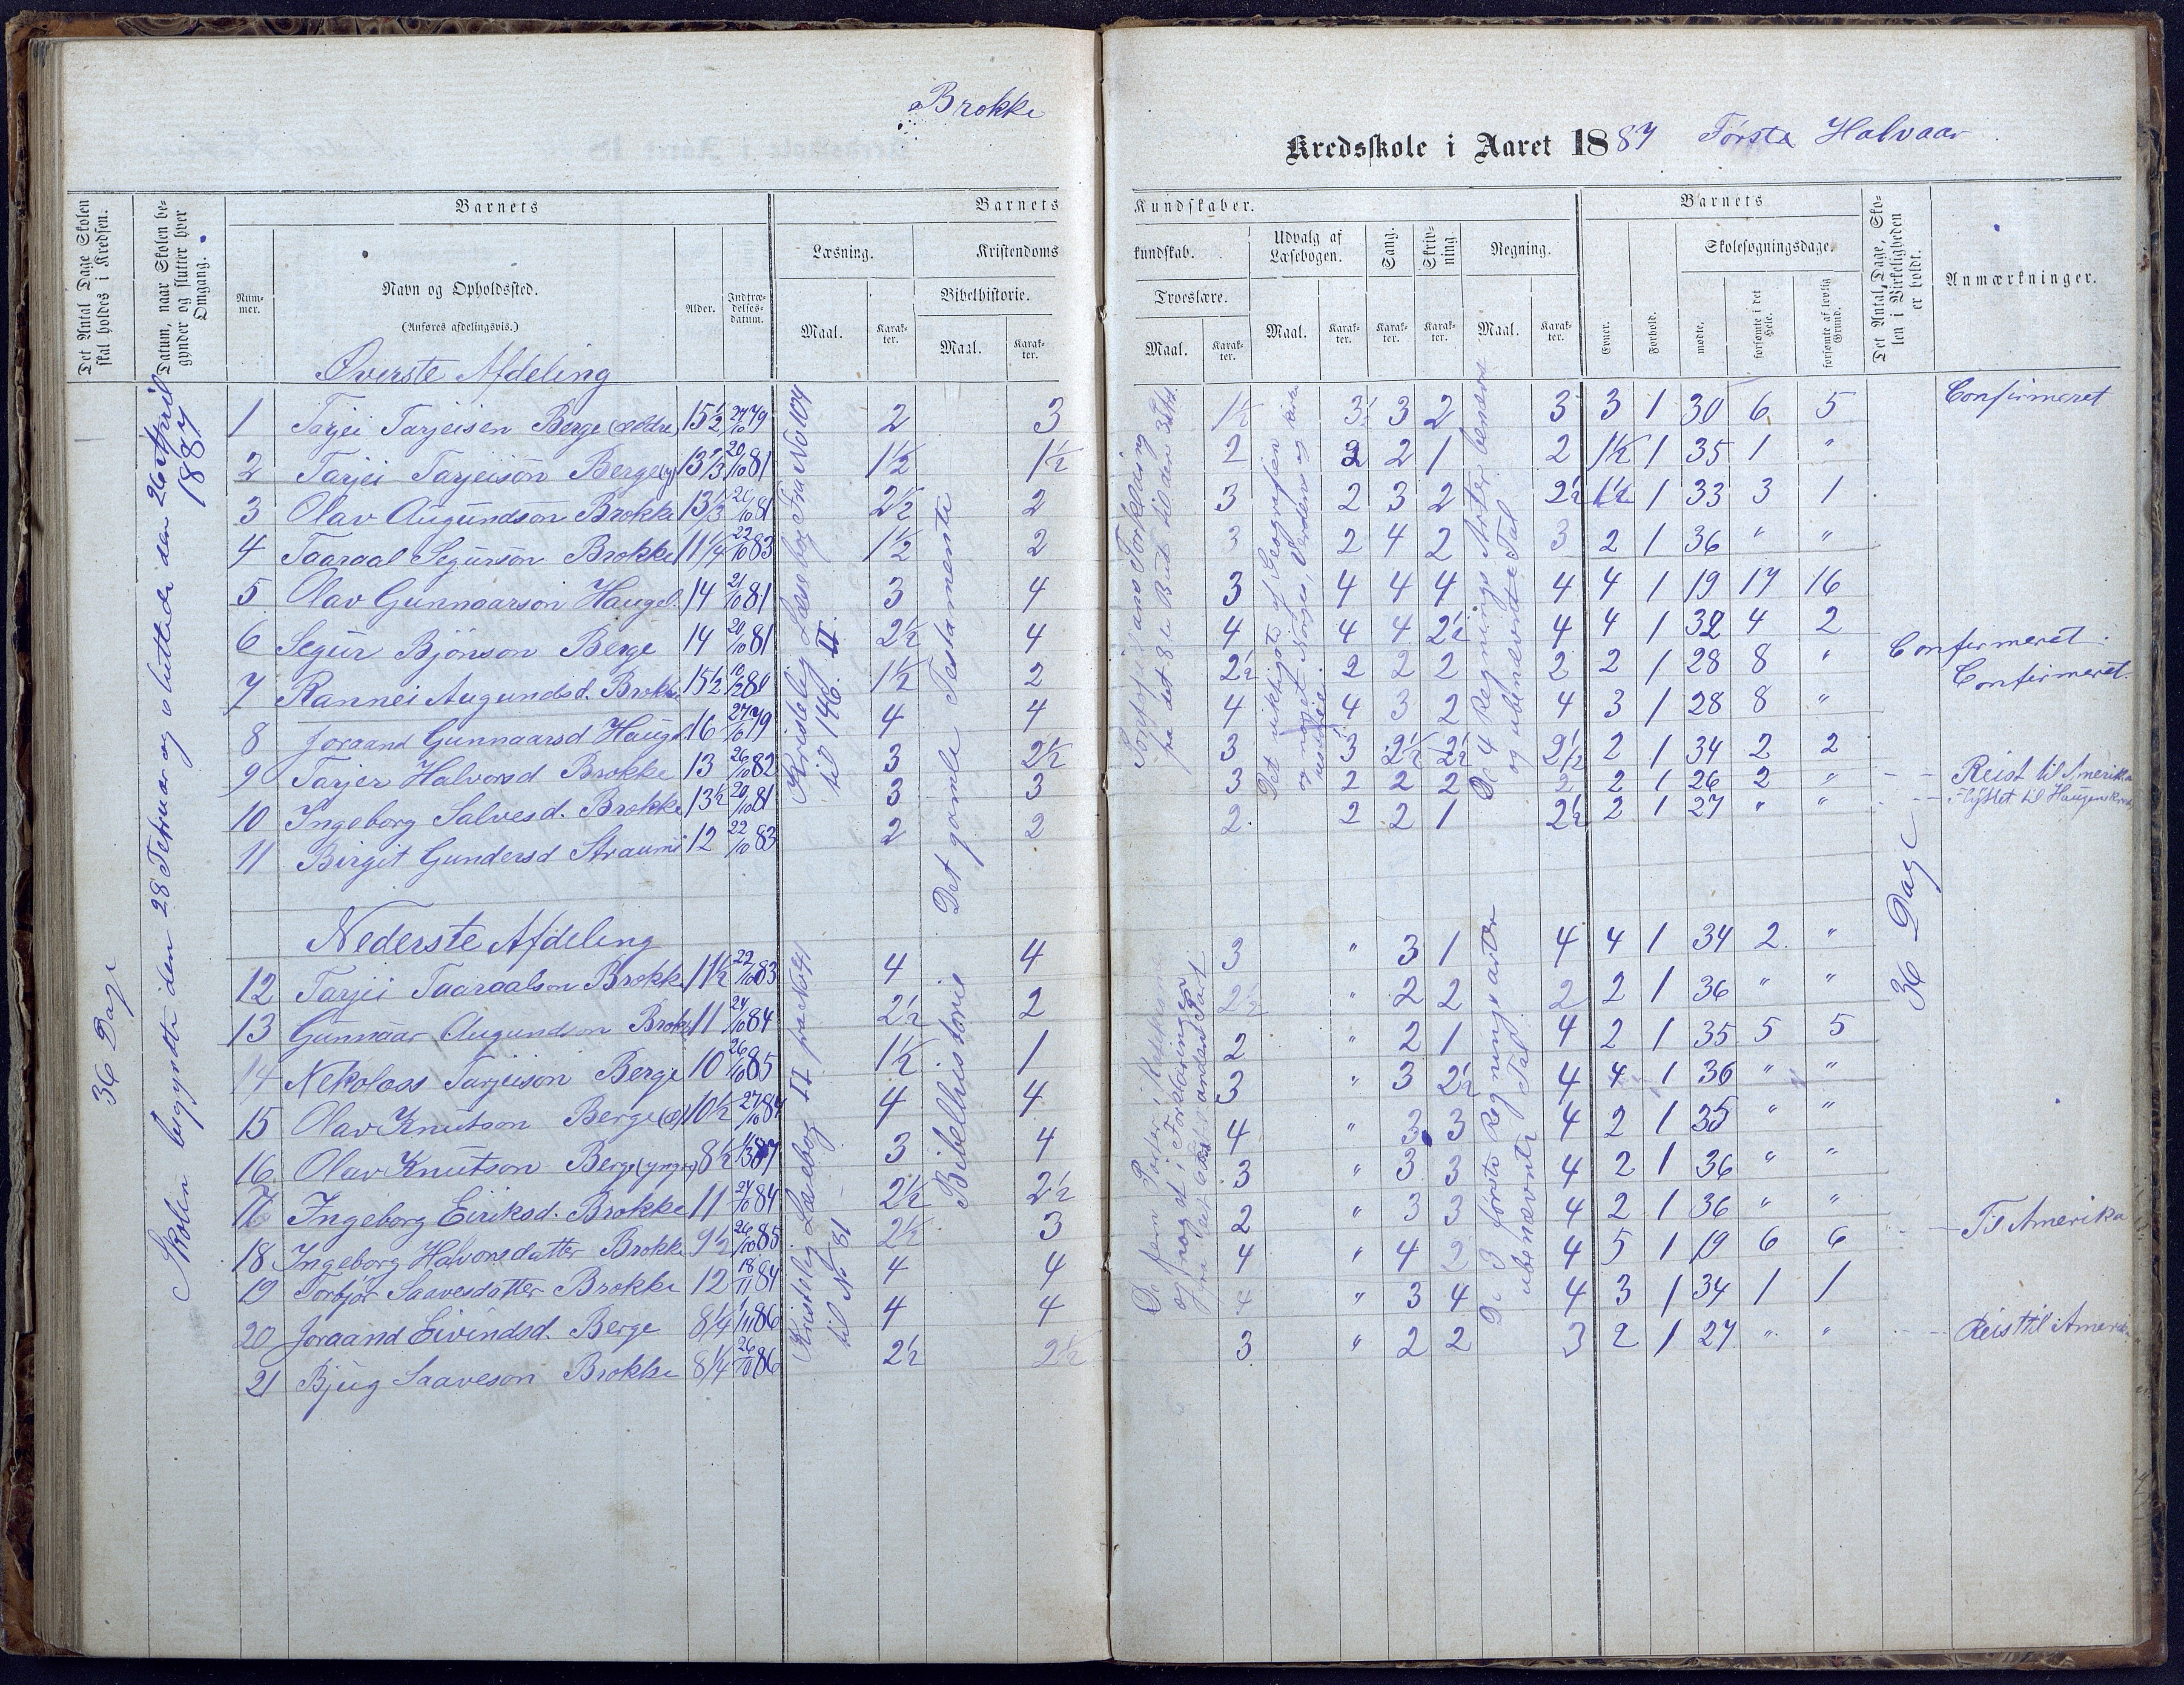 Brokke
Kredsskole i Aaret 1887 Første Halvaar
Det Antal Dage Skolen skal holdes i Kredsen.
Datum, naar Skolen begynder og slutter hver Omgang.
Barnets
Nummer.
Navn og Opholdssted.
(Anføres afdelingsvis.)
Alder.
Indtrædelsesdatum.
Barnets Kundskaber.
Læsning.
Maal.
Karakter.
Kristendomskundskab.
Bibelhistorie.
Maal.
Karakter.
Troeslære.
Maal.
Karakter.
Udvalg af Læsebogen.
Maal.
Karakter.
Sang.
Karakter.
Skrivning.
Karakter.
Regning.
Maal.
Karakter.
Barnets
Evner.
Forhold.
Skolesøgningsdage.
mødte.
forsømte i det Hele.
forsømte af lovlig Grund.
Det Antal Dage, Skolen i Virkeligheden er holdt.
Anmærkninger.
36 Dage
Skolen begyndte den 28 Februar og sluttede den 26 April 1887
Øverste Afdeling
Kristelig Læsebog Fra No 104 til 146. II.
Det gamle Testamente
1 Tarjei Tarjeisen Berge (ældre) 15½ 27/10 79 2 3 1½ 3½ 3 2 3 3 1 30 6 5 Confirmeret
2 Tarjei Tarjeison Berge (y) 13⅔ 20/10 81 1½ 1½ 2 2 2 1 2 1½ 1 35 1 "
3 Olav Augundson Brokke 13⅓ 21/10 81 2½ 2 3 2 3 2 2½ 1½ 1 33 3 1
4 Taaraal Segurson Brokke 11¼ 22/10 83 1½ 2 3 2 4 2 3 2 1 36 " "
5 Olav Gunnarson Haugel. 14 21/10 81 3 4 3 4 4 4 4 4 1 19 17 16
6 Segur Bjönson Berge 14 20/10 81 2½ 4 4 4 4 2½ 4 4 1 32 4 2
7 Rannei Augundsd. Brokke 15½ 1½ 2 2½ 2 2 2 2 2 1 28 8 " Confirmeret.
8 Joraand Gunnaarsd Hauge 16 27/10 79 4 4 4 4 3 2 4 3 1 28 8 " Confirmeret.
9 Tarjer Halvorsd. Brokke 13 26/10 82 3 2½ 3 3 2½ 2½ 2½ 2 1 34 2 2
10 Ingeborg Salvesd. Brokke 13½ 20/10 81 3 3 3 2 2 2 2 2 1 26 2 " Reist til Amerika
11 Birgit Gundersd Straumi 12 22/10 83 2 2 2 2 2 1 2½ 2 1 27 " " Flyttet til Haugenskreds
36 Dage
Nederste Afdeling
Kristelig Læsebog II til No 81
Bibelhistorie
De 3 første Regningsarter ubenævnte Tal
12 Tarjei Taaraalson Brokke 11½ 22/10 83 4 4 3 " 3 1 4 4 1 34 2 "
13 Gunnaar Augundson Brokk 11 24/10 84 2½ 2 2½ " 2 2 2 2 1 36 " "
14 Nekolass Tarjeison Berge 10 26/10 85 1½ 1 2 " 2 1 4 2 1 35 5 5
15 Olav Knutson Berge (æ) 10½ 27/10 84 4 4 3 " 3 2½ 4 4 1 36 " "
16. Olav Knutson Berge (yngre) 8½ 3 4 4 " 3 3 4 2 1 35 " "
17 Ingeborg Eiriksd. Brokke 11 24/10 84 2½ 2½ 3 " 3 3 4 2 1 36 " "
18 Ingeborg Halvorsdatter Brokke 9½ 26/10 85 2½ 3 2 " 3 3 4 2 1 36 " "
19 Torbjør Saavesdatter Brokke 12 18/11 84 4 4 4 " 4 2 4 5 1 19 6 6 Til Amerika
20 Joraand Eivindsd. Berge 8¼ 1/11 86 4 4 4 " 3 4 4 3 1 34 1 1
21 Bjug Saaveson Brokke 8¼ 26/10 86 2½ 2½ 3 " 2 2 3 2 1 27 " " Reist til Amerika